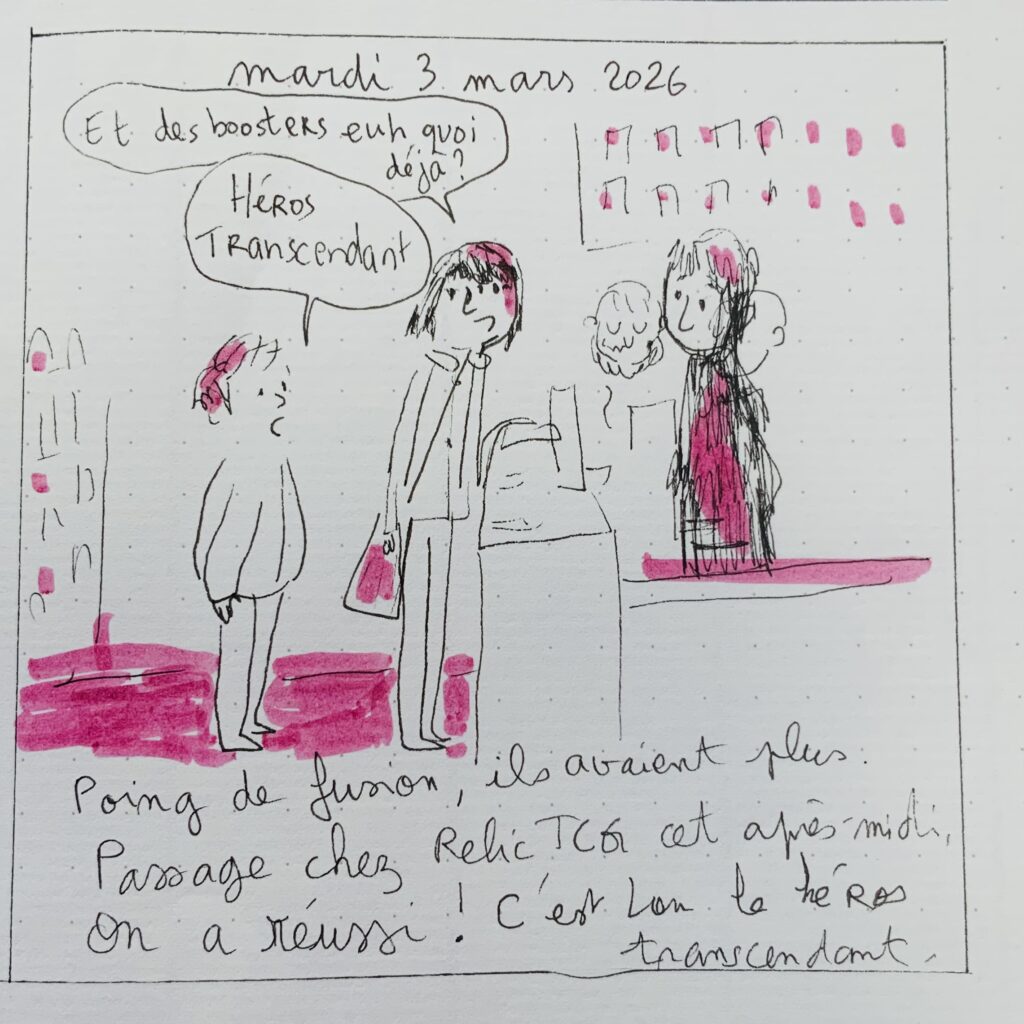 mardi 3 mars 2026
Et des boosters euh quoi
déjà ?
Héros
Transcendant
Poing de fusion, ils avaient plus.
Passage chez Relic TCG cet après-midi,
on a réussi ! C'est Lou le héros
transcendant.